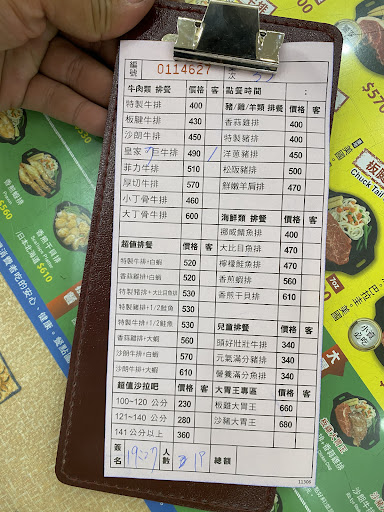 編號 0114627
次
牛肉類 排餐 價格 客
特製牛排 400
板腱牛排 430
沙朗牛排 450
皇家 巨牛排 490
菲力牛排 510
厚切牛排 570
小丁骨牛排 460
大丁骨牛排 600
超值排餐 價格 客
特製牛排+白蝦 520
香蒜雞排+白蝦 520
特製豬排+大比目魚排 530
特製豬排+1/2鮭魚 530
特製牛排+1/2鮭魚 530
香蒜雞排+大蝦 560
沙朗牛排+白蝦 570
沙朗牛排+大蝦 610
超值沙拉吧 價格 客
100~120 公分 230
121~140 公分 280
141 公分以上 360
簽名 19:27 人數 19
點餐時間 :
豬/雞/羊類 排餐 價格 客
香蒜雞排 400
特製豬排 400
洋蔥豬排 450
松阪豬排 500
鮮嫩羊肩排 470
海鮮類 排餐 價格 客
挪威鯖魚排 400
大比目魚排 470
檸檬鮭魚排 470
香煎蝦排 560
香煎干貝排 610
兒童排餐 價格 客
頭好壯壯牛排 340
元氣滿分豬排 340
營養滿分魚排 340
大胃王專區 價格 客
板雞大胃王 660
沙豬大胃王 680
總額
11306
香煎干貝排
/日本北海道 $610
$560
消費者吃的安心、健康
板腱
Chuck Tail
7oz